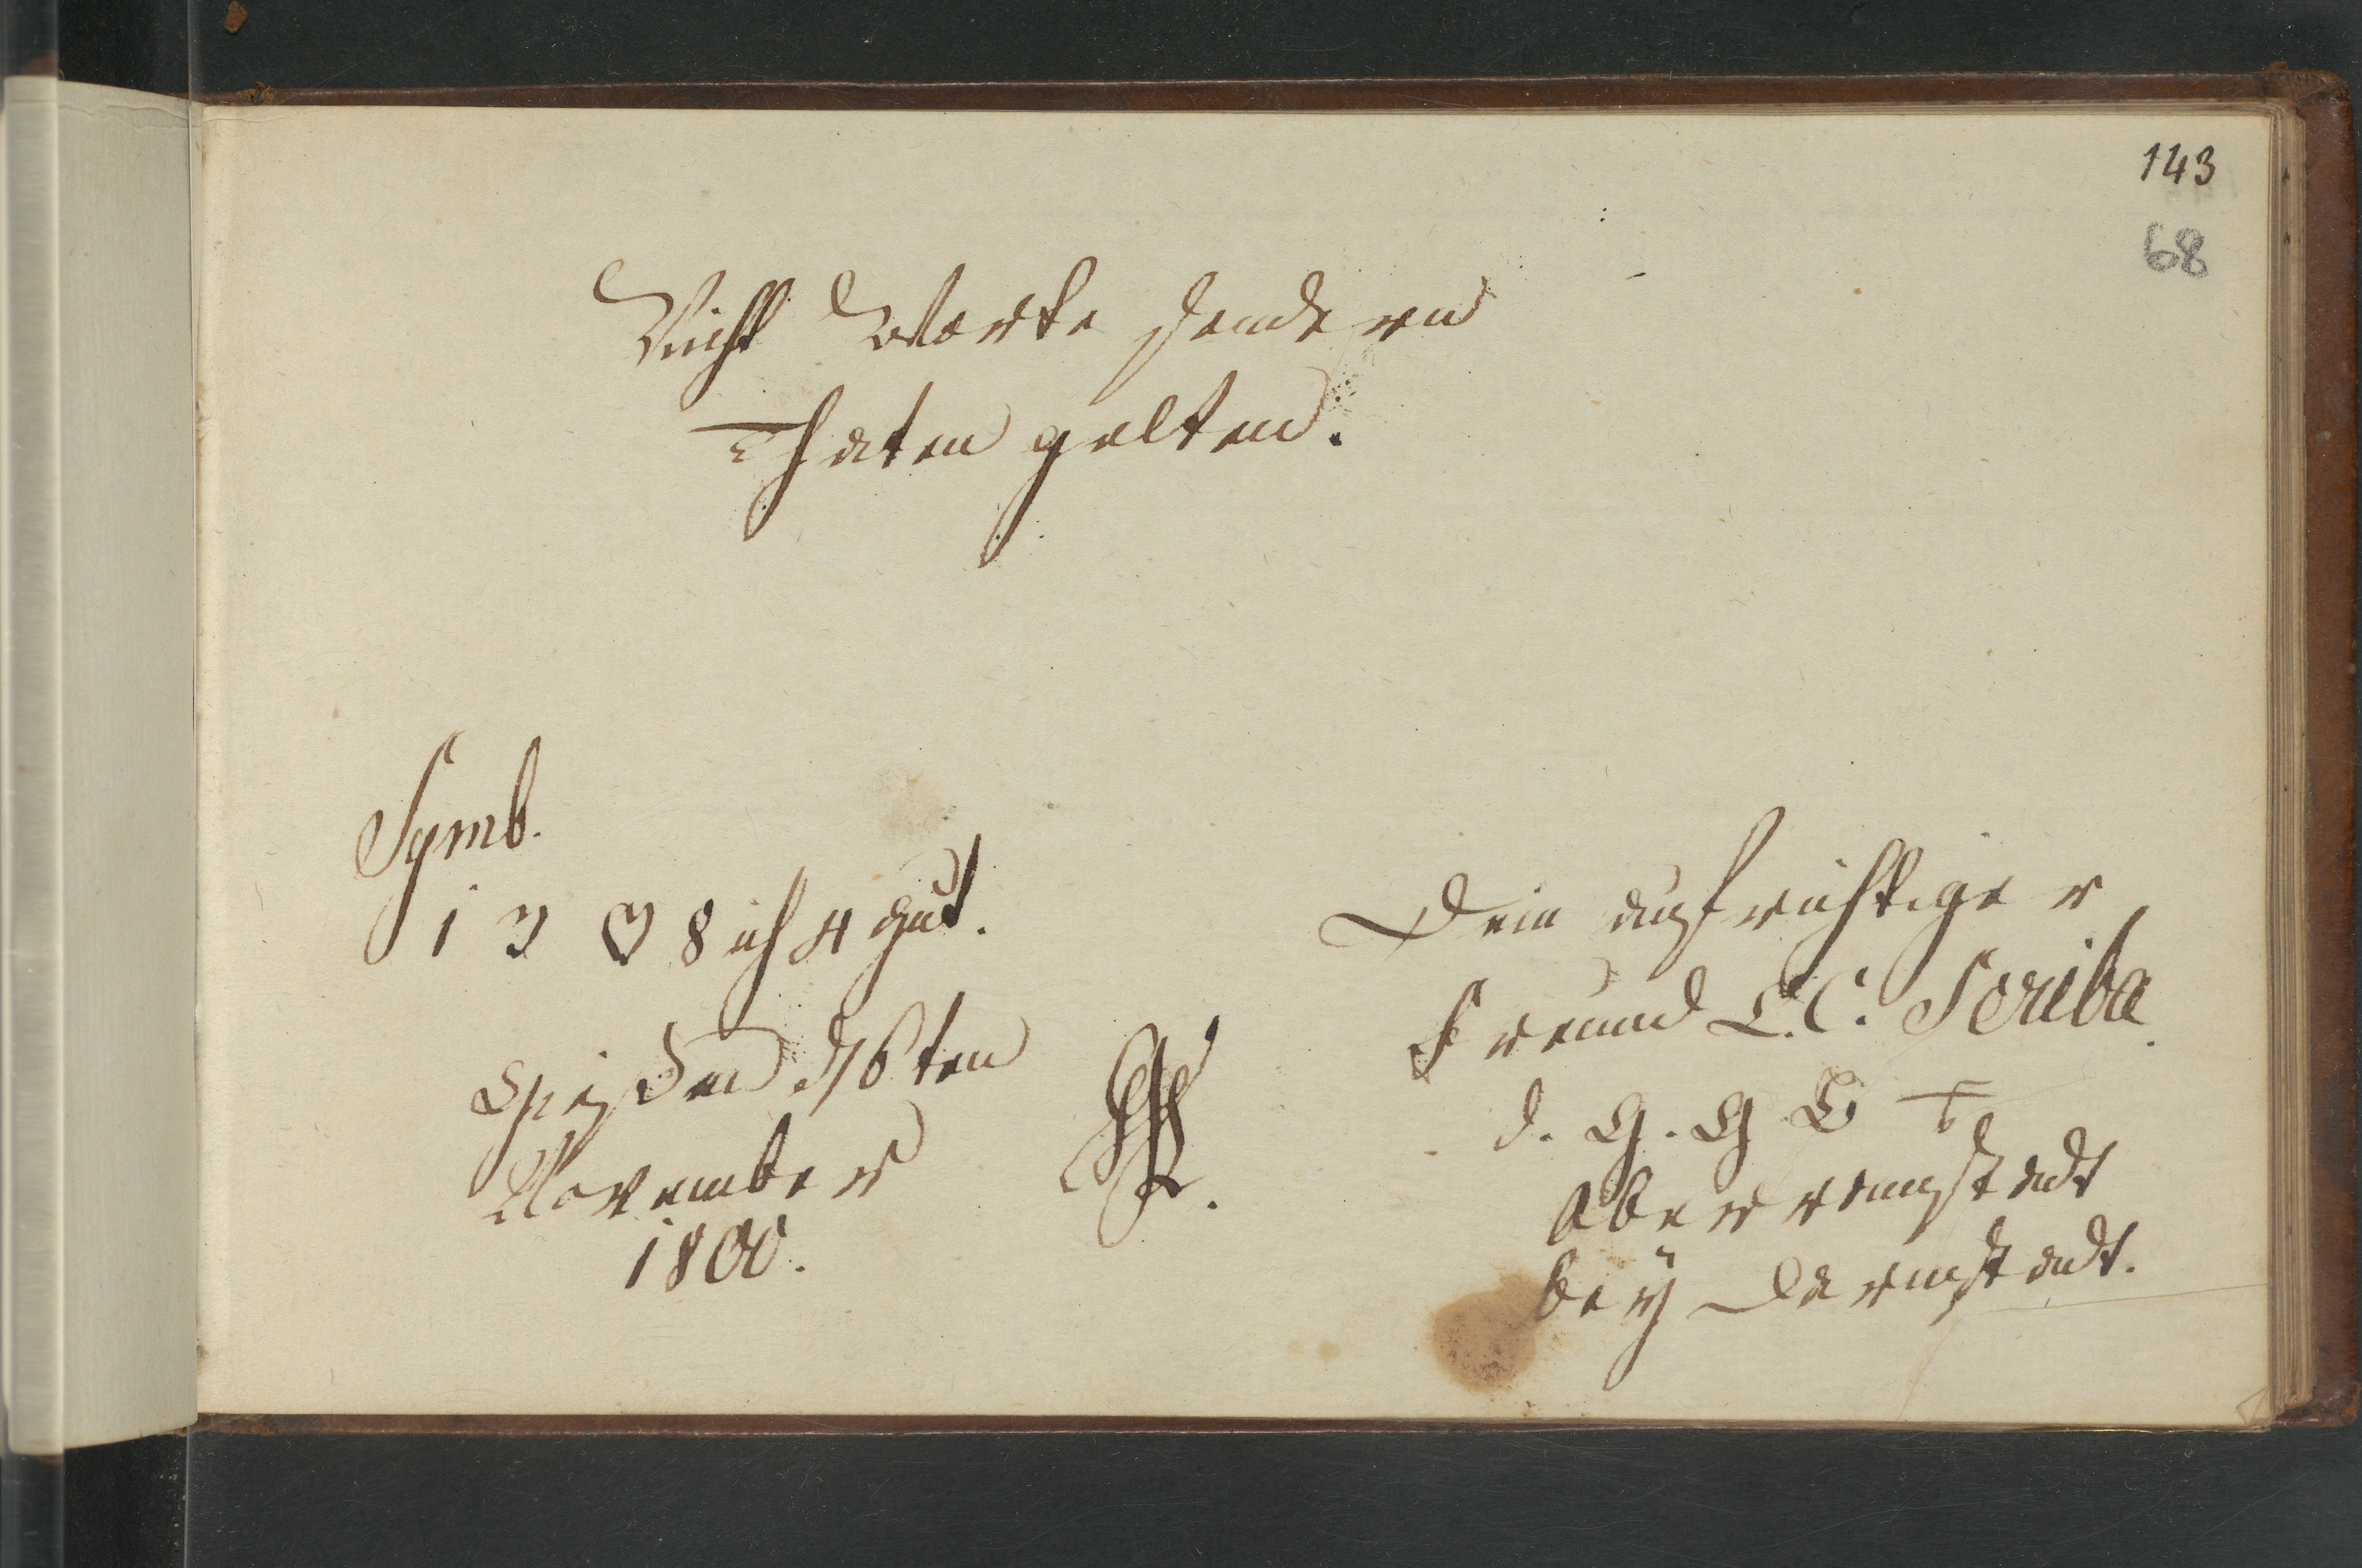 143
68
Nicht Worte sondern
Thaten gelten.
Symb.
1 3 ♡ 8 ich 4 gut.
Giesen d 16ten
November
1800.
Dein aufrichtiger
Freund L. C. Scriba.
d. G. G. B
Oberramstadt
bey Darmstadt.